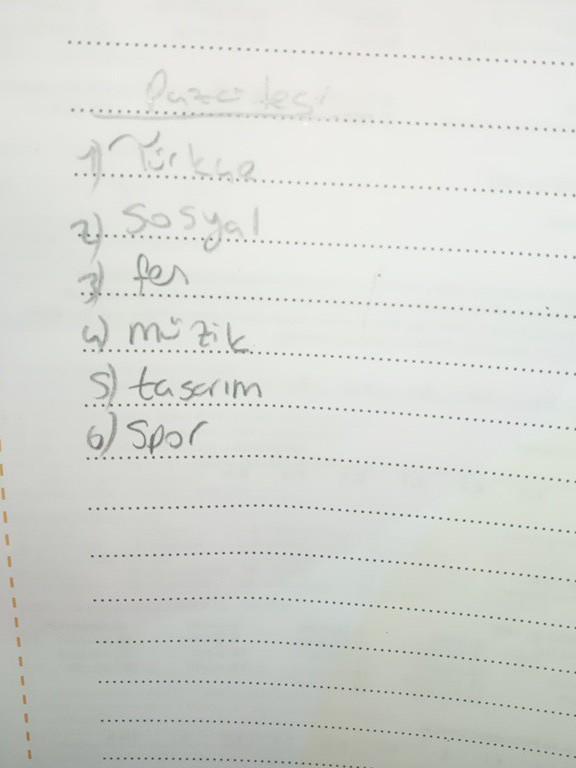 Pazartesi
1) Türkçe
2) Sosyal
3) fen
4) müzik
5) tasarım
6) Spor